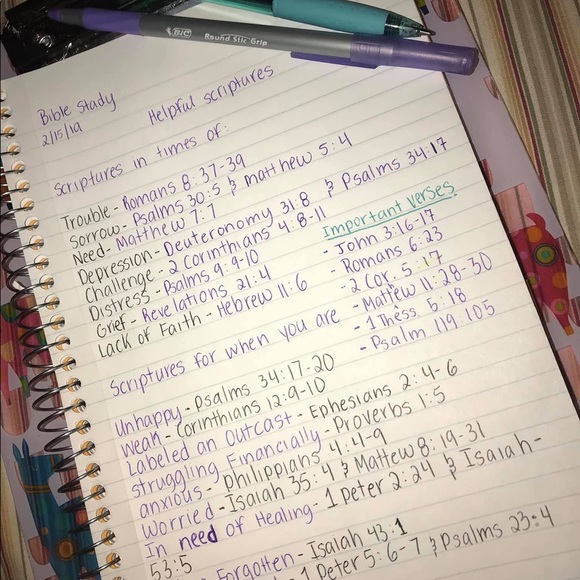 BIC Round Stic Grip
Bible Study
2/15/19
Helpful scriptures
scriptures in times of:
Trouble - Romans 8:37-39
Sorrow - Psalms 30:5 & Matthew 5:4
Need - Matthew 7:7
Depression - Deuteronomy 31:8 & Psalms 34:17
Challenge - 2 Corinthians 4:8-11
Distress - Psalms 9:9-10
Grief - Revelations 21:4
Lack of Faith - Hebrew 11:6
Important verses
- John 3:16-17
- Romans 6:23
- 2 Cor. 5:17
- Matthew 11:28-30
- 1 Thess. 5:18
- Psalm 119 105
Scriptures for when you are
Unhappy - Psalms 34:17-20
Weak - Corinthians 12:9-10
Labeled an Outcast - Ephesians 2:4-6
struggling Financially - Proverbs 1:5
anxious - Philippians 4:4-9
Worried - Isaiah 35:4 & Mattew 8:19-31
In need of Healing - 1 Peter 2:24 & Isaiah -
53:5
Forgotten - Isaiah 43:1
1 Peter 5:6-7 & Psalms 23:4